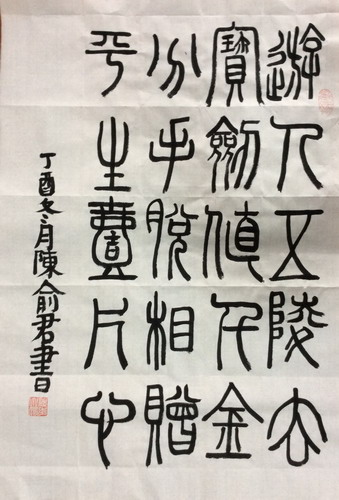 遊人五陵去
寶劍值千金
分手脫相贈
平生賣片心
丁酉冬月陳俞君書